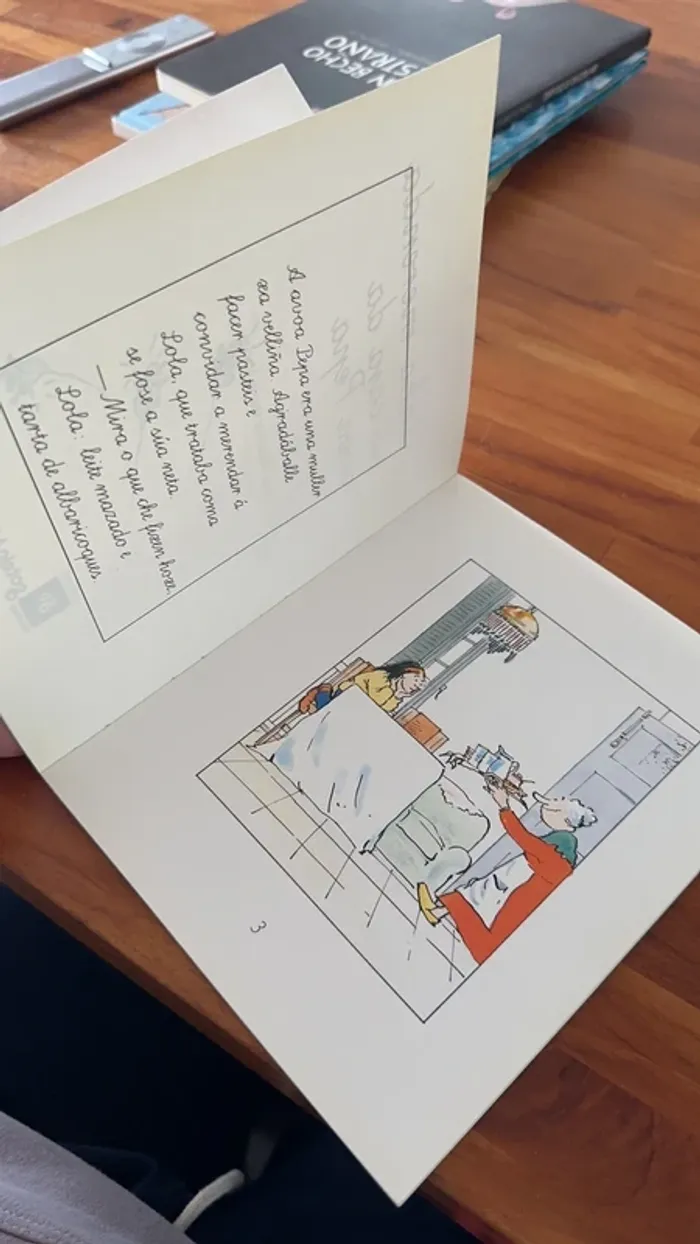 A avoa Pepa era una muller
xa velliña. Agradáballe
facer pasteis e
convidar a merendar á
Lola, que trataba coma
se fose a súa neta.
— Mira o que che fixen hoxe,
Lola: leite mazado e
tarta de albaricoques
3
N BECHO
STRANO